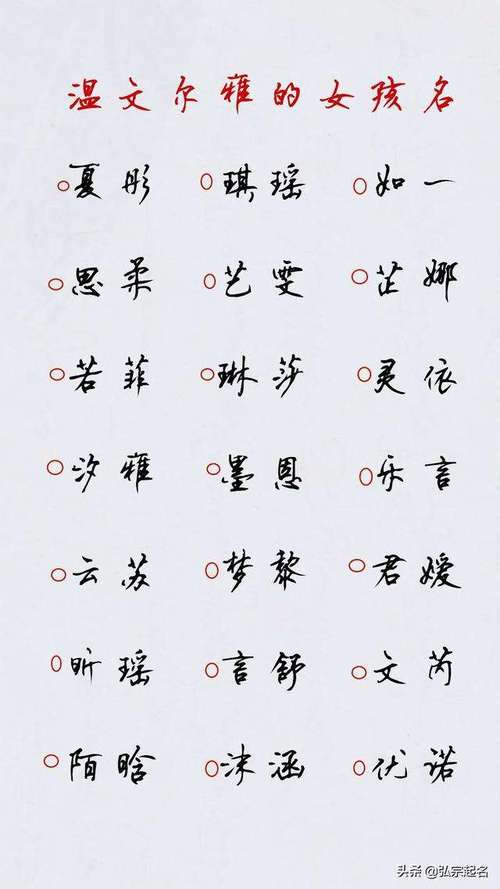 温文尔雅的女孩名
○夏彤 ○琪瑶 ○如一
○思柔 ○艺雯 ○芷娜
○若菲 ○琳莎 ○灵依
○汐雅 ○墨恩 ○乐言
○云苏 ○梦黎 ○君嫒
○昕瑶 ○言舒 ○文芮
○陌晗 ○沫涵 ○优诺
头条 @弘宗起名